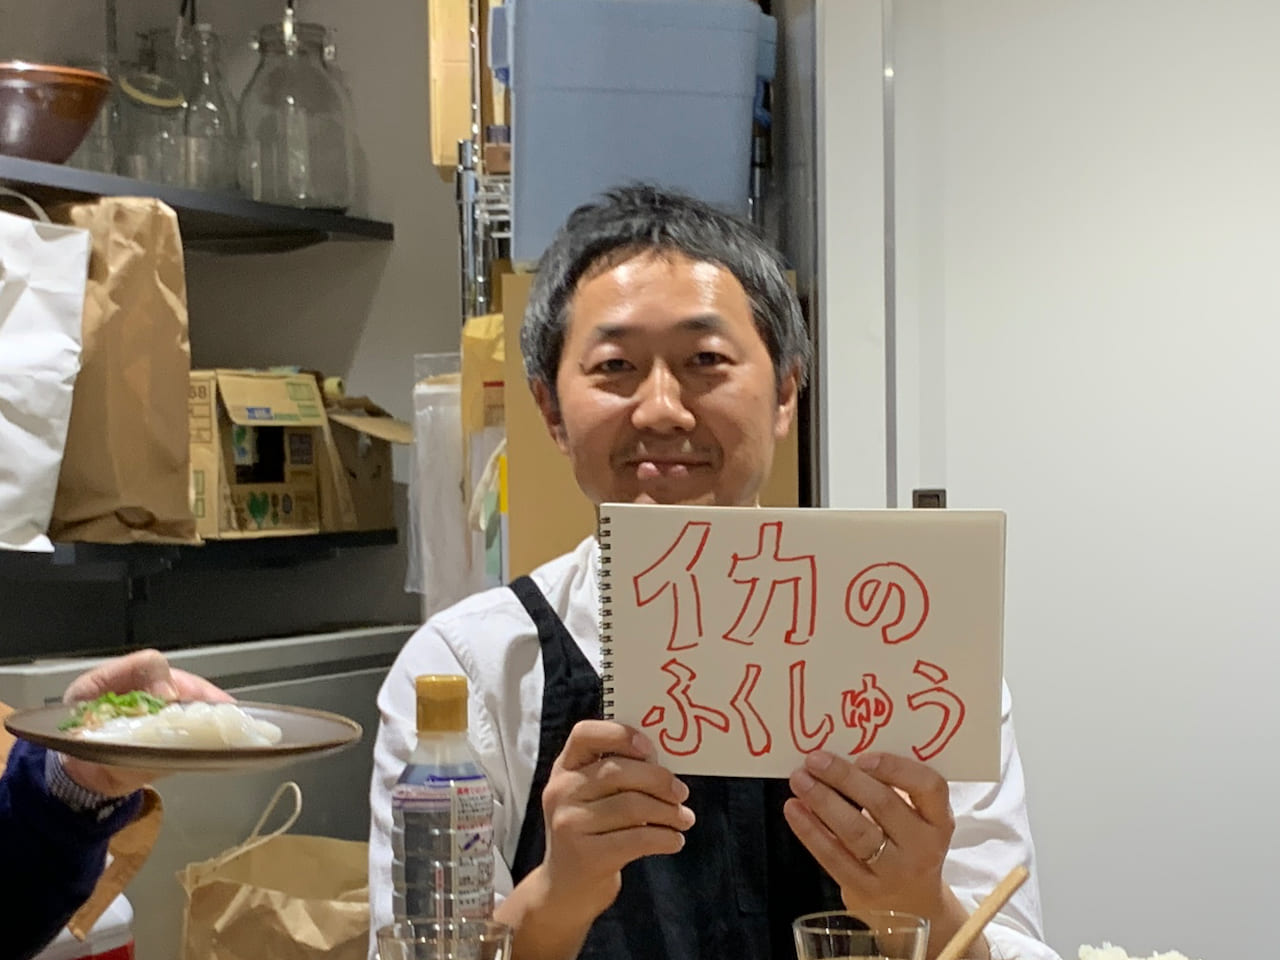 イカの
ふくしゅう